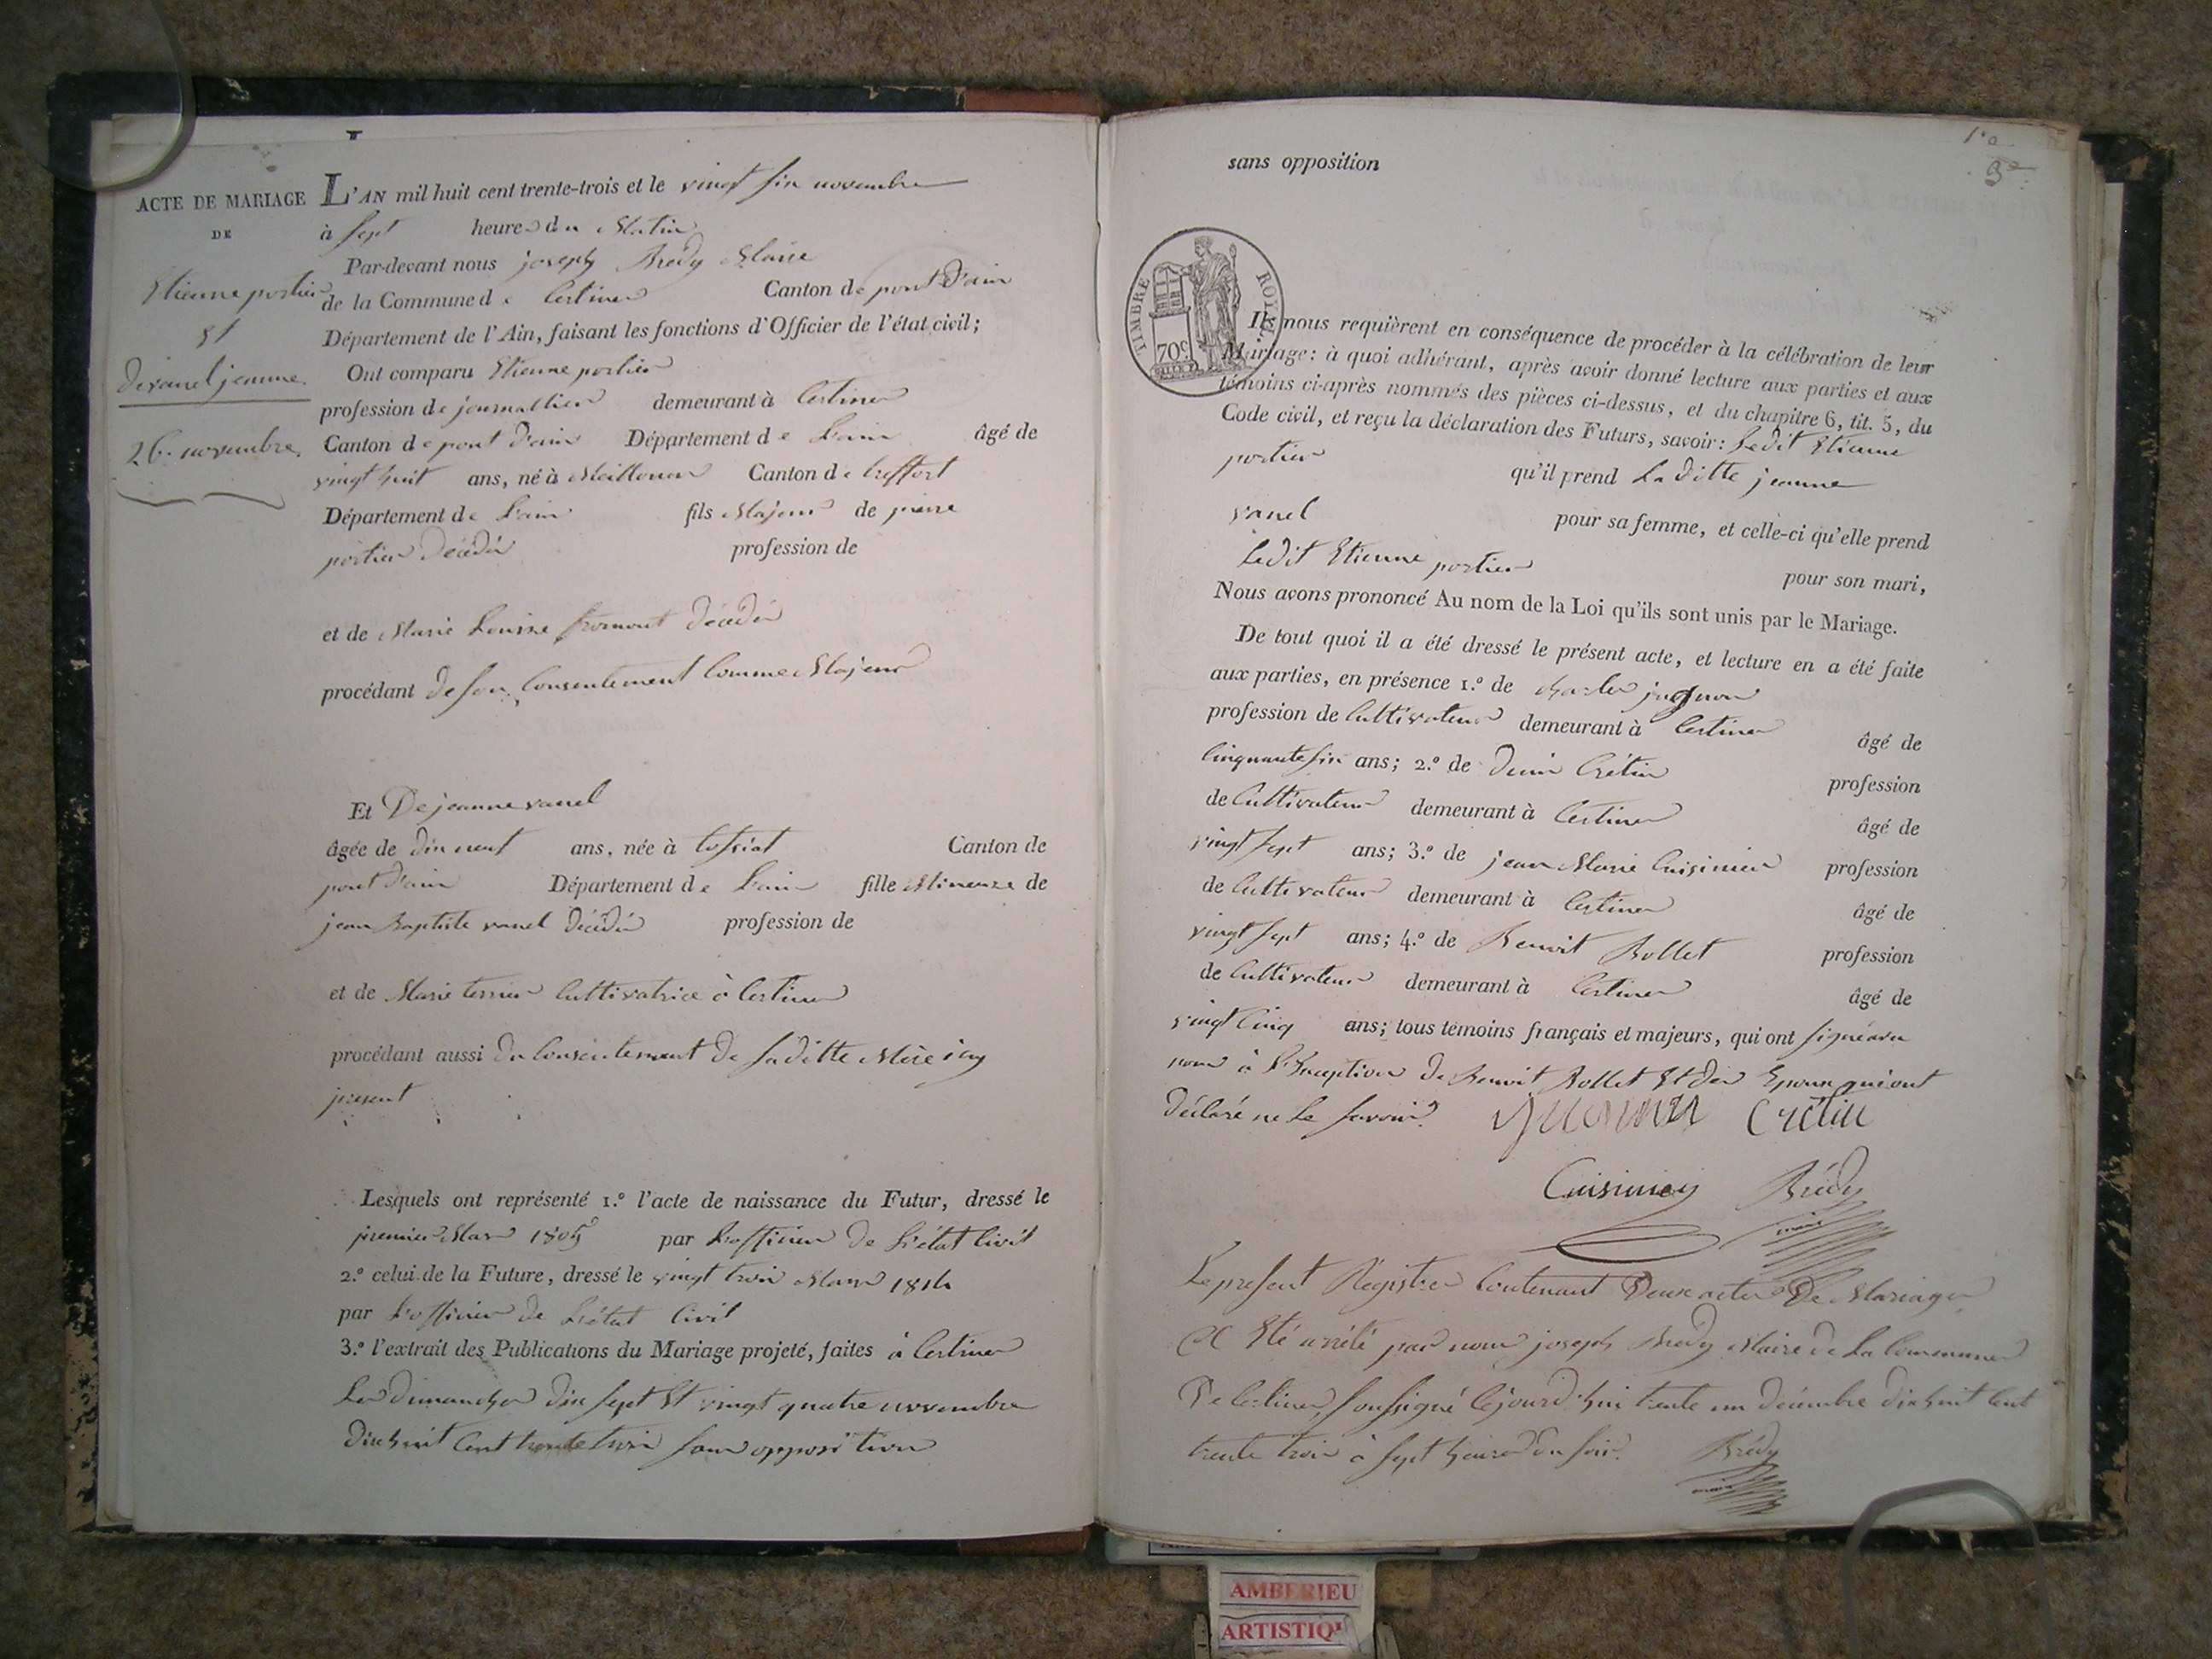 ACTE DE MARIAGE
DE
Etienne portier
Et
De vanel jeanne
26. novembre
L'AN mil huit cent trente-trois et le vingt six novembre
à sept heures du Matin
Par-devant nous joseph Brédy Maire
de la Commune de Certines Canton de pont d'ain
Département de l'Ain, faisant les fonctions d'Officier de l'état civil;
Ont comparu Etienne portier
profession de journallier demeurant à Certines
Canton de pont d'ain Département de L'ain âgé de
vingt huit ans, né à Meillonas Canton de treffort
Département de L'ain fils Majeur de pierre
portier décédé profession de
et de Marie Louise fromont décédé
procédant de son Consentement Comme Majeur
Et De jeanne vanel
âgée de dix neuf ans, née à tossiat Canton de
pont d'ain Département de L'ain fille Mineure de
jean Baptiste vanel décédé profession de
et de Marie terrier Cultivatrice à Certines
procédant aussi du Consentement de saditte Mère icy
present
Lesquels ont représenté 1.º l'acte de naissance du Futur, dressé le
premier Mars 1805 par L'officier de L'état Civil
2.º celui de la Future, dressé le vingt trois Mars 1814
par L'officier de L'état Civil
3.º l'extrait des Publications du Mariage projeté, faites à Certines
Les dimanches dix sept Et vingt quatre novembre
dix huit Cent trente trois sans opposition
1.e
3e
sans opposition
TIMBRE ROYAL
70c
Ils nous requièrent en conséquence de procéder à la célébration de leur
Mariage: à quoi adhérant, après avoir donné lecture aux parties et aux
témoins ci-après nommés des pièces ci-dessus, et du chapitre 6, tit. 5, du
Code civil, et reçu la déclaration des Futurs, savoir: Ledit Etienne
portier qu'il prend La ditte jeanne
vanel pour sa femme, et celle-ci qu'elle prend
Ledit Etienne portier pour son mari,
Nous avons prononcé Au nom de la Loi qu'ils sont unis par le Mariage.
De tout quoi il a été dressé le présent acte, et lecture en a été faite
aux parties, en présence 1.º de charles
profession de Cultivateur demeurant à Certines âgé de
Cinquante six ans; 2.º de Denis Crétin profession
de Cultivateur demeurant à Certines âgé de
vingt sept ans; 3.º de jean Marie Cuisinier profession
de Cultivateur demeurant à Certines âgé de
vingt sept ans; 4.º de Benoit Bollet profession
de Cultivateur demeurant à Certines âgé de
vingt Cinq ans; tous témoins français et majeurs, qui ont signé avec
nous à L'Exception de Benoit Bollet Et des Epoux qui ont
déclaré ne Le savoir.
Crétin
Cuisinier Brédy
maire
Le present Registre Contenant Deux actes De Mariages
a Eté arrêté par nous joseph Brédy Maire de La Commune
De Certines, soussigné Cejourd'hui trente un décembre dix huit Cent
trente trois à sept heures du soir. Brédy
maire
AMBERIEU
ARTISTIQ